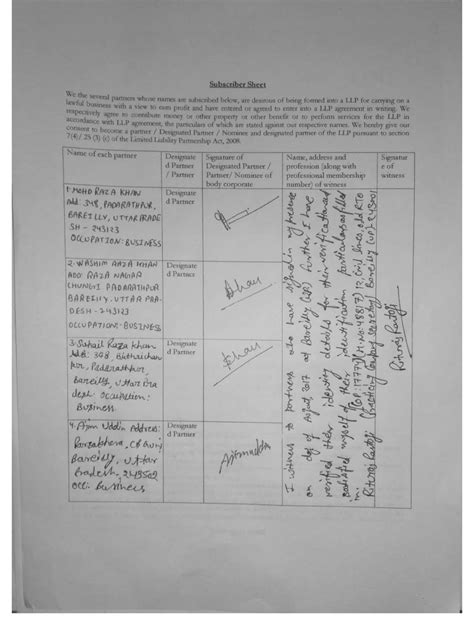 Subscriber Sheet
We the several partners whose names are subscribed below, are desirous of being formed into a LLP for carrying on a
lawful business with a view to earn profit and have entered or agreed to enter into a LLP agreement in writing. We
respectively agree to contribute money or other property or other benefit or to perform services for the LLP in
accordance with LLP agreement, the particulars of which are stated against our respective names. We hereby give our
consent to become a partner / Designated Partner / Nominee and designated partner of the LLP pursuant to section
7(4)/ 25 (3) (c) of the Limited Liability Partnership Act, 2008.
Name of each partner
Designate
d Partner
/ Partner
Signature of
Designated Partner /
Partner/ Nominee of
body corporate
Name, address and
profession (along with
professional membership
number) of witness
Signatur
e of
witness
1. MOHD RAZA KHAN
Add: 348, PADARATHPUR,
BAREILLY, UTTAR PRADE
SH - 243123
OCCUPATION: BUSINESS
Designate
d Partner
2. WASHIM RAZA KHAN
ADD: RAZA NAGAR
CHUNGI PADARATHPUR
BAREILLY, UTTAR PRA-
DESH - 243123
OCCUPATION: BUSINESS
Designate
d Partner
Khan
3. Suhail Raza Khan
Add: 348,
pur, Padarathpur,
Bareilly, Uttar Pra
desh Occupation:
Business
Designate
d Partner
Khan
4. Ajim Uddin Address:
Bareilly, Uttar
Pradesh, 243502
Occ: Business
Designate
d Partner
Ajimuddin
I witness to partners who have signed in my presence
on day of August, 2017 at Bareilly (UP) further I have
verified their identity details for their verification and
satisfied myself of their identification particulars as filled
in.
Rituraj Rastogi
Practicing Company Secretary Bareilly (UP) 243001
Rituraj Rastogi